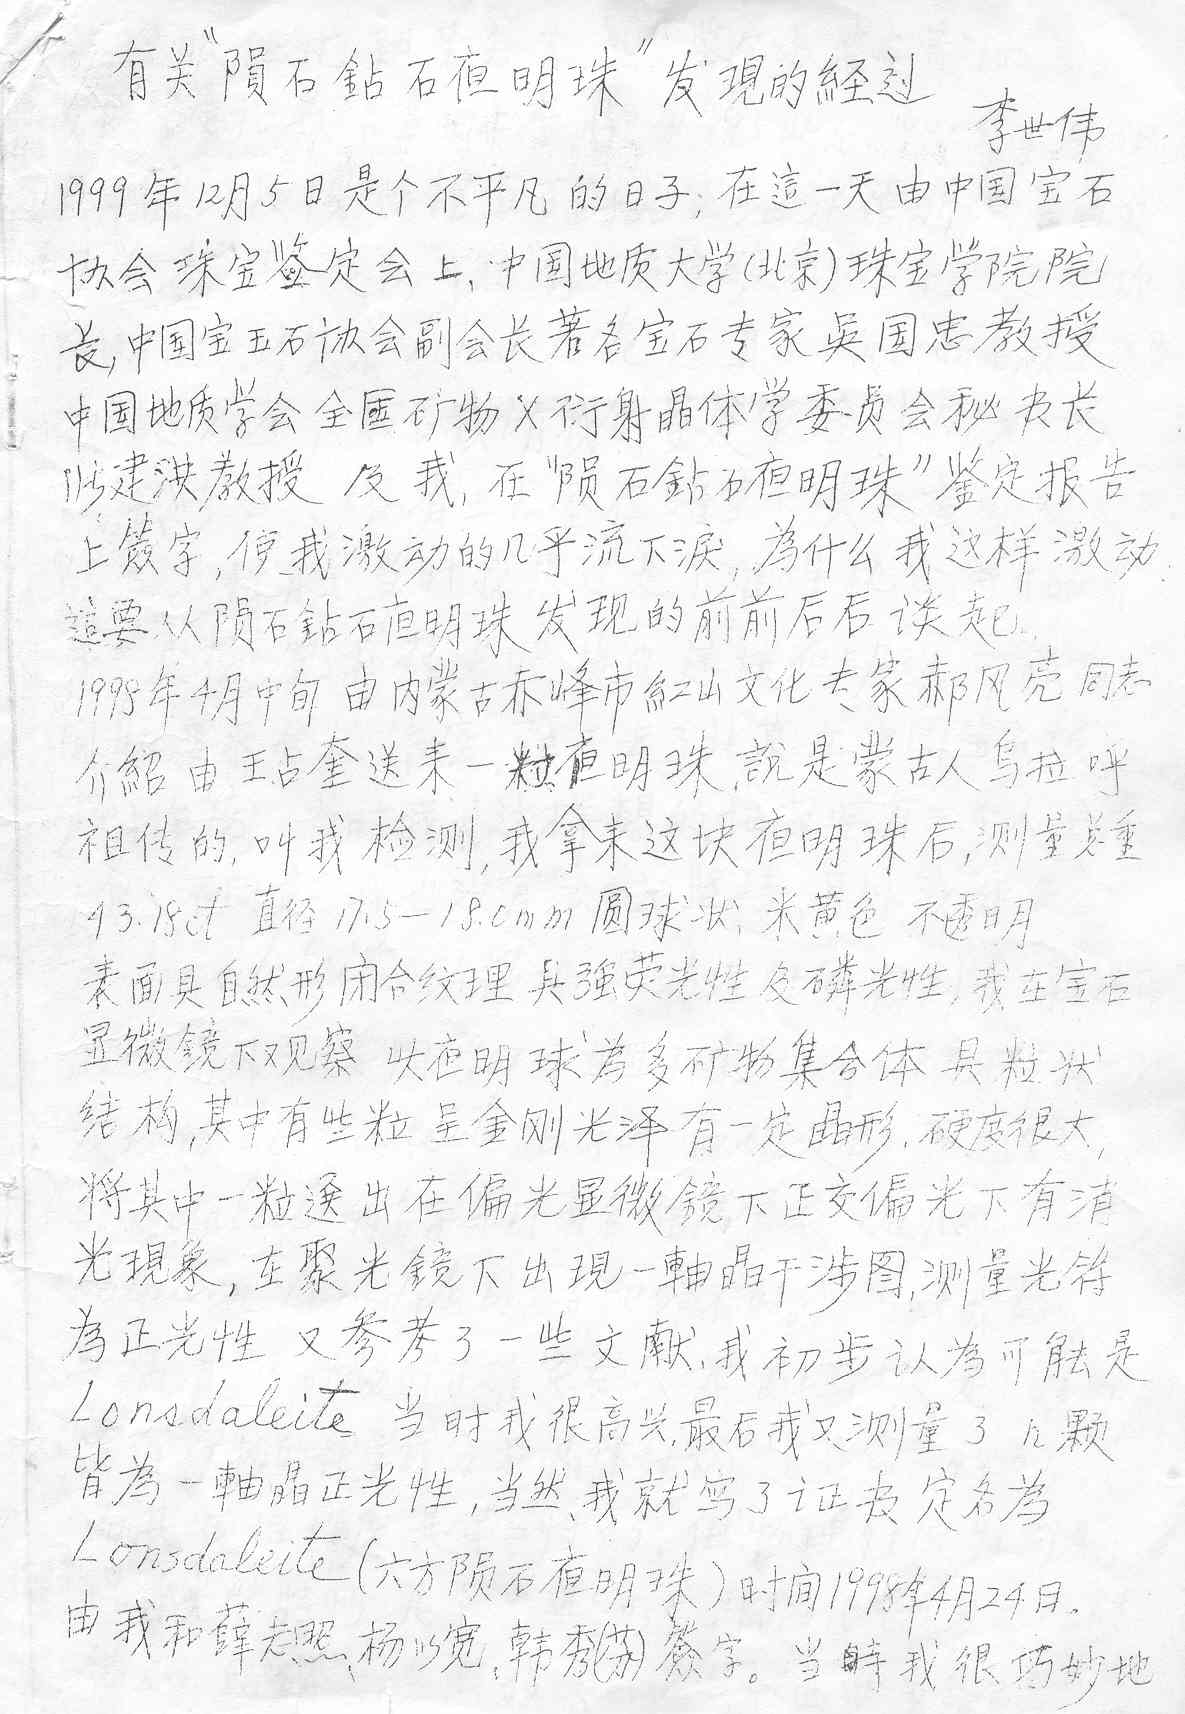 有关"陨石鉆石夜明珠"发現的経过
李世伟
1999年12月5日是个不平凡的日子,在這一天由中国宝石
协会珠宝鉴定会上,中国地质大学(北京)珠宝学院院
长,中国宝玉石协会副会长著名宝石专家吳国忠教授
中国地质学会全国矿物X衍射晶体学委员会秘书长
陈建洪教授及我,在"陨石鉆石夜明珠"鉴定报告
上簽字,使我激动的几乎流下淚,為什么我这样激动
這要从陨石鉆石夜明珠发现的前前后后谈起.
1998年4月中旬由内蒙古赤峰市紅山文化专家郝风亮同志
介紹由王占奎送来一粒夜明珠,說是蒙古人乌拉呼
祖传的,叫我检测,我拿来这块夜明珠后,测量总重
93.78ct 直径17.5-18.0mm圆球状,米黄色 不透明
表面具自然形闭合纹理具强荧光性及磷光性,我在宝石
显微镜下观察 此夜明球為多矿物集合体具粒状
结构,其中有些粒呈金刚光泽有一定晶形.硬度很大,
将其中一粒選出在偏光显微鏡下正交偏光下有消
光現象,在聚光鏡下出現一軸晶干涉图,测量光符
為正光性又参考了一些文献,我初步认為可能是
Lonsdaleite 当时我很高兴,最后我又测量了几颗
皆為一軸晶正光性,当然,我就写了证书定名為
Lonsdaleite(六方陨石夜明珠)时间1998年4月24日.
由我和薛志照、杨以宽、韩秀(芬)簽字。当時我很巧妙地